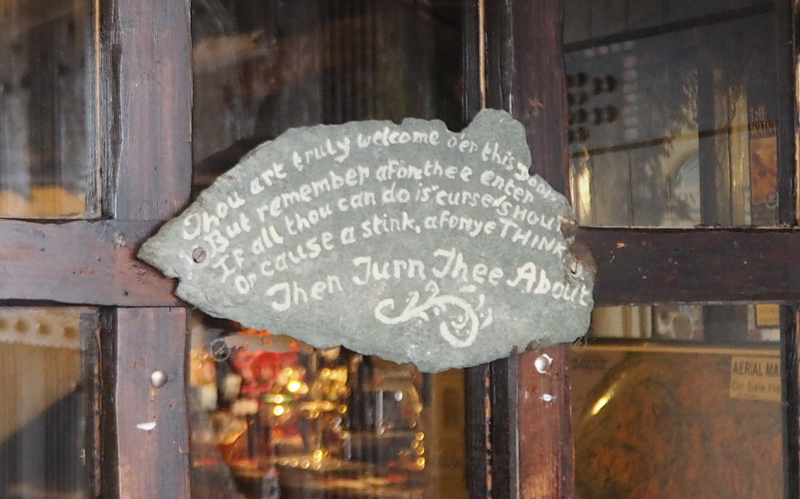 Thou art truly welcome oer this Door
But remember afore thee enter
If all thou can do is curse/SHOUT
Or cause a stink, afore ye THINK
Then Turn Thee About
AERIAL MA
On Sale He